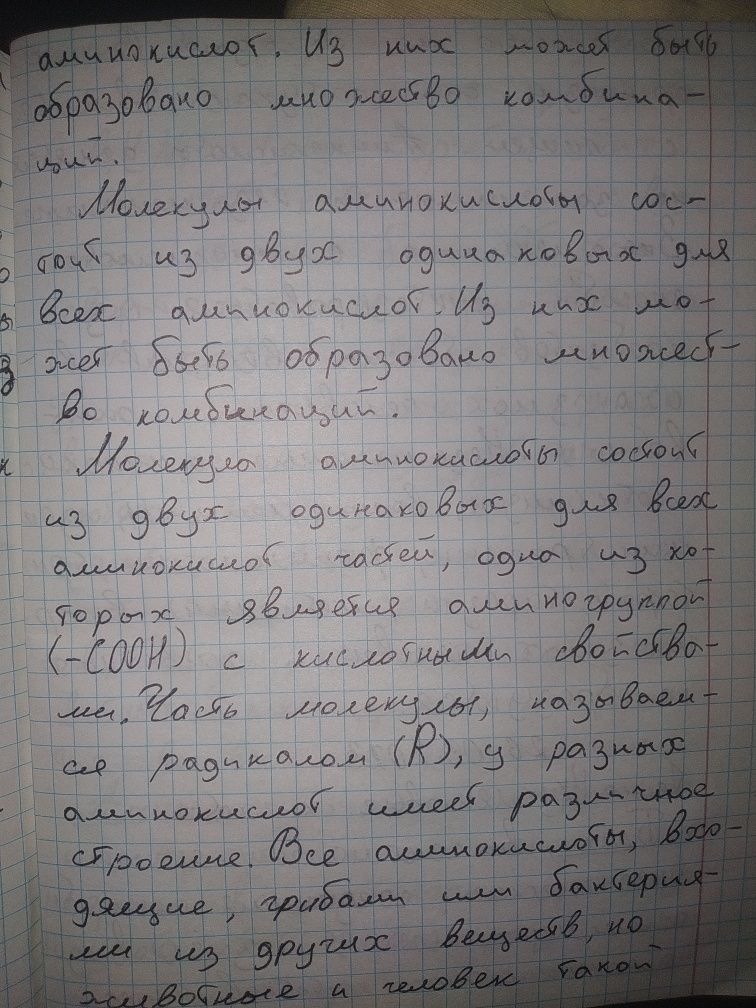 аминокислот. Из них может быть
образовано множество комбина-
ций.
Молекулы аминокислоты сос-
тоит из двух одинаковых для
всех аминокислот. Из них мо-
жет быть образовано множест-
во комбинаций.
Молекула аминокислоты состоит
из двух одинаковых для всех
аминокислот частей, одна из ко-
торых является аминогруппой
(-COOH) с кислотными свойства-
ми. Часть молекулы, называем-
ся радикалом (R), у разных
аминокислот имеет различное
строение. Все аминокислоты, вхо-
дящие, грибами или бактерия-
ми из других веществ, но
животные и человек такой